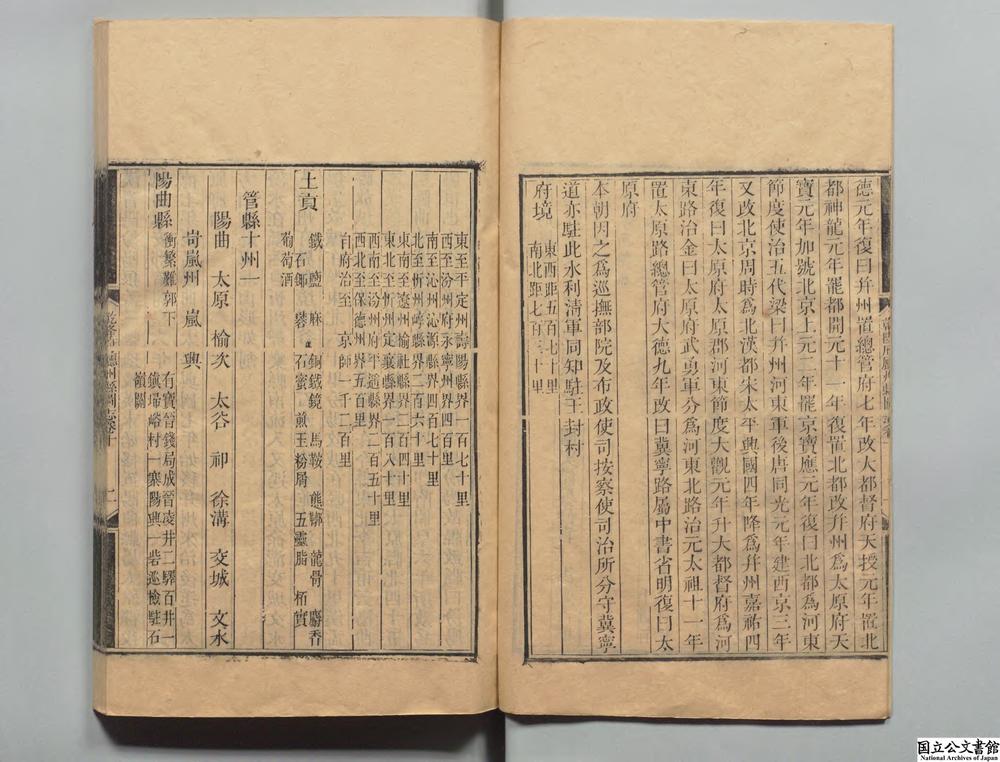 德元年復曰幷州置總管府七年改大都督府天授元年置北
都神龍元年罷都開元十一年復置北都改幷州為太原府天
寶元年加號北京上元二年罷京寶應元年復曰北都為河東
節度使治五代梁曰幷州河東軍後唐同光元年建西京三年
又改北京周時為北漢都宋太平興國四年降為幷州嘉祐四
年復曰太原府太原郡河東節度大觀元年升大都督府為河
東路治金曰太原府武勇軍分為河東北路治元太祖十一年
置太原路總管府大德九年改曰冀寧路屬中書省明復曰太
原府
本朝因之為巡撫部院及布政使司按察使司治所分守冀寧
道亦駐此水利清軍同知駐王封村
府境
東西距五百七十里
南北距七百三十里
東至平定州壽陽縣界一百七十里
西至汾州府永寧州界四百里
南至沁州沁源縣界四百七十里
北至忻州崞縣界二百六十里
東南至遼州榆社縣界二百四十里
東北至忻州定襄縣界一百八十里
西南至汾州府平遙縣界二百五十里
西北至保德州界五百里
自府治至 京師一千二百里
土貢
鐵 鹽 麻 銅鉞鏡 馬鞍 熊鞹 龍骨 麝香
石䤋 蓉 石蜜 煎玉粉屑 五靈脂 栢實
葡萄酒
管縣十州一
陽曲 太原 榆次 太谷 祁 徐溝 交城 文水
岢嵐州 嵐 興
陽曲縣
衝繁難郭下
有寶晉錢局成晉凌井二驛百井一
鎮埽峪村一寨陽興一砦巡檢駐石
嶺關
國立公文書館
National Archives of Japan